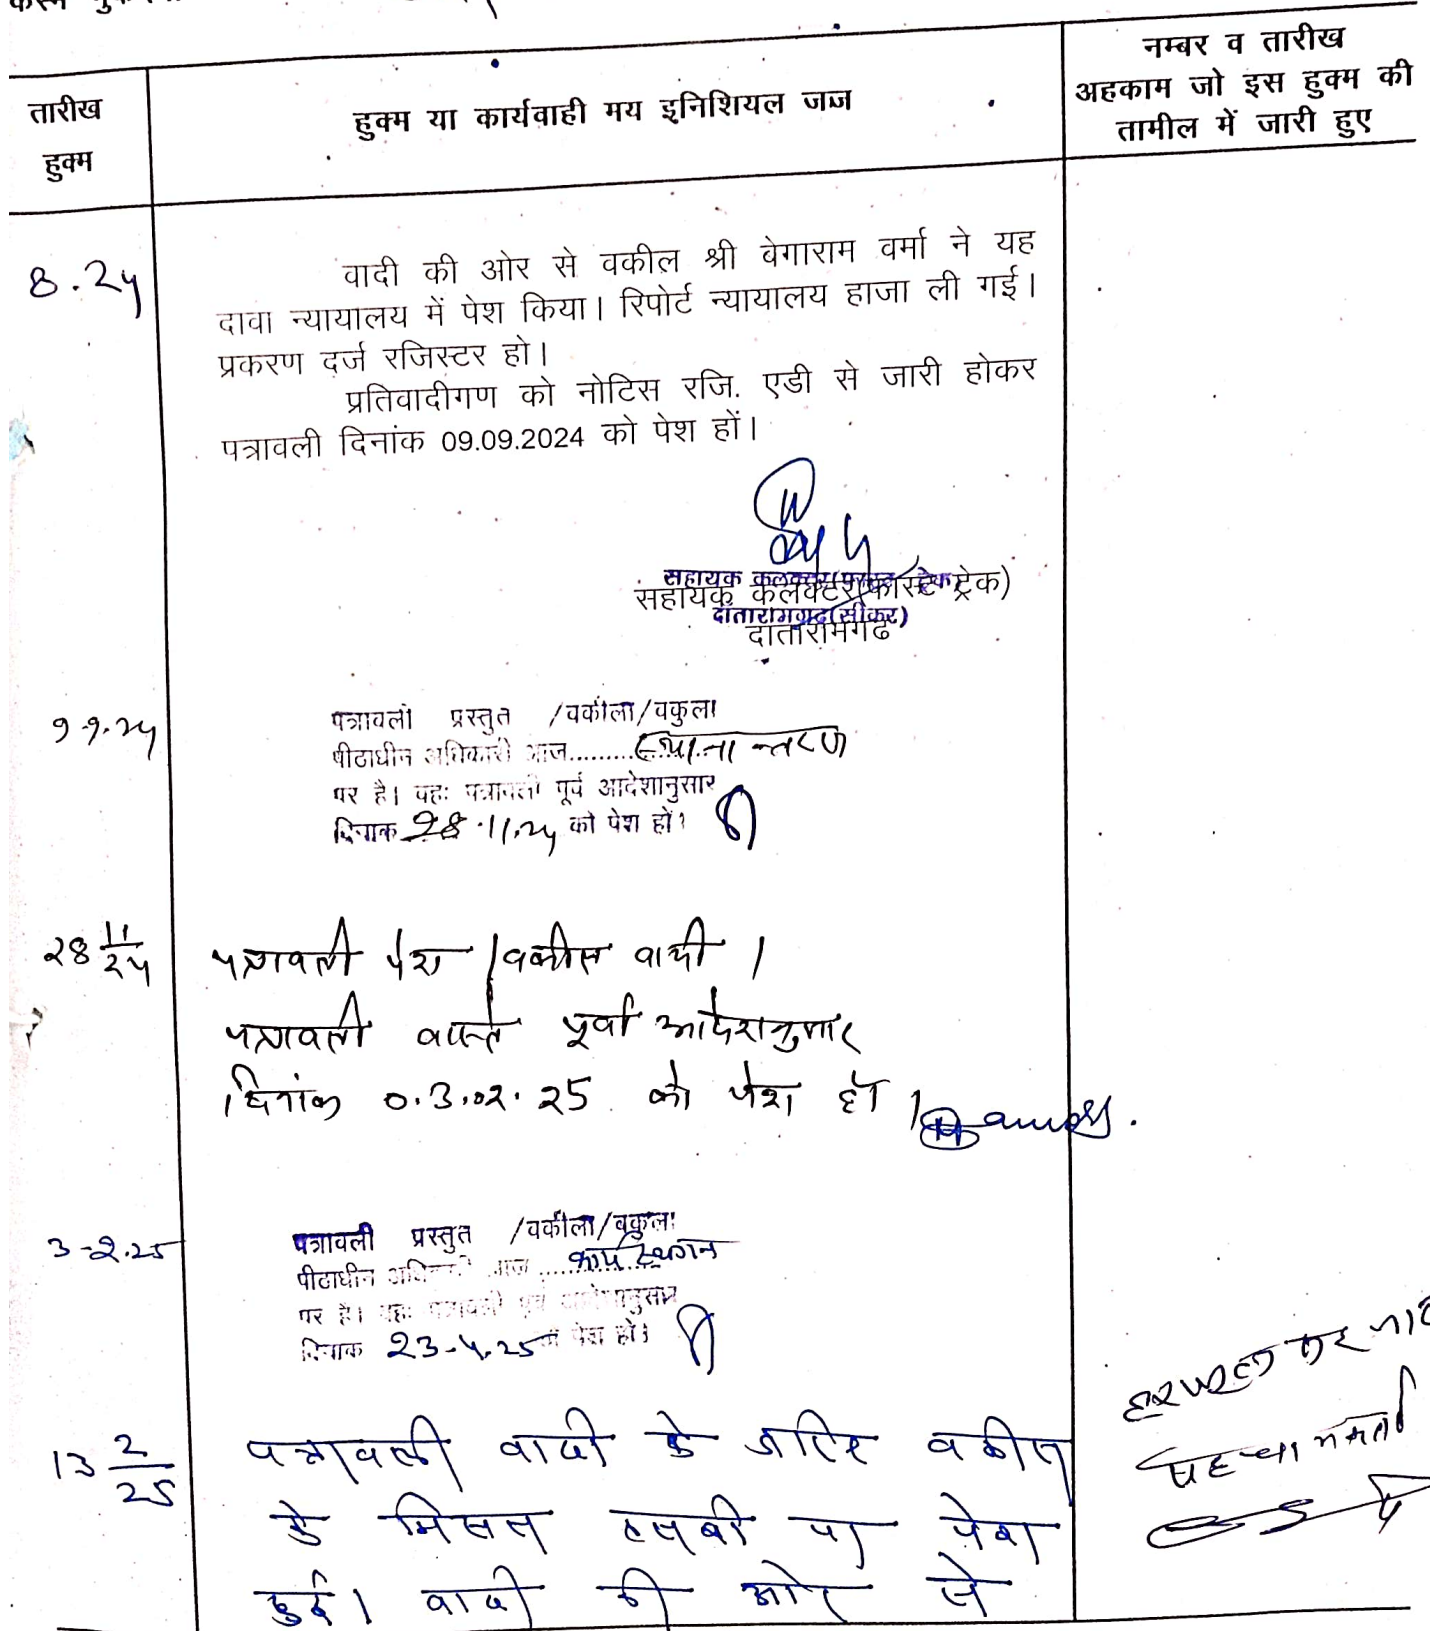 तारीख
हुक्म
हुक्म या कार्यवाही मय इनिशियल जज
नम्बर व तारीख
अहकाम जो इस हुक्म की
तामील में जारी हुए
8.24
वादी की ओर से वकील श्री बेगाराम वर्मा ने यह
दावा न्यायालय में पेश किया। रिपोर्ट न्यायालय हाजा ली गई।
प्रकरण दर्ज रजिस्टर हो।
प्रतिवादीगण को नोटिस रजि. एडी से जारी होकर
पत्रावली दिनांक 09.09.2024 को पेश हों।
सहायक कलक्टर(फास्ट ट्रेक)
दांतारामगढ(सीकर)
सहायक कलक्टर(फास्ट ट्रेक)
दांतारामगढ
9.9.24
पत्रावली प्रस्तुत /वकीला/वकुला
पीठाधीन अधिकारी आज.........स्थानान्तरण
पर है। यहः पत्रावली पूर्व आदेशानुसार
दिनांक 28.11.24 को पेश हों।
28 11/24
पत्रावली पेश । वकील वादी ।
पत्रावली वास्ते पूर्व आदेशानुसार
दिनांक 03.02.25 को पेश हो ।
3-2.25
पत्रावली प्रस्तुत /वकीला/वकुला
पीठाधीन अधिकारी आज ..........कार्य स्थगन
पर है। यहः पत्रावली पूर्व आदेशानुसार
दिनांक 23-4.25 को पेश हों।
13 2/25
पत्रावली वादी के जरिए वकील
के मिसल तलबी पर पेश
हुई। वादी की ओर से